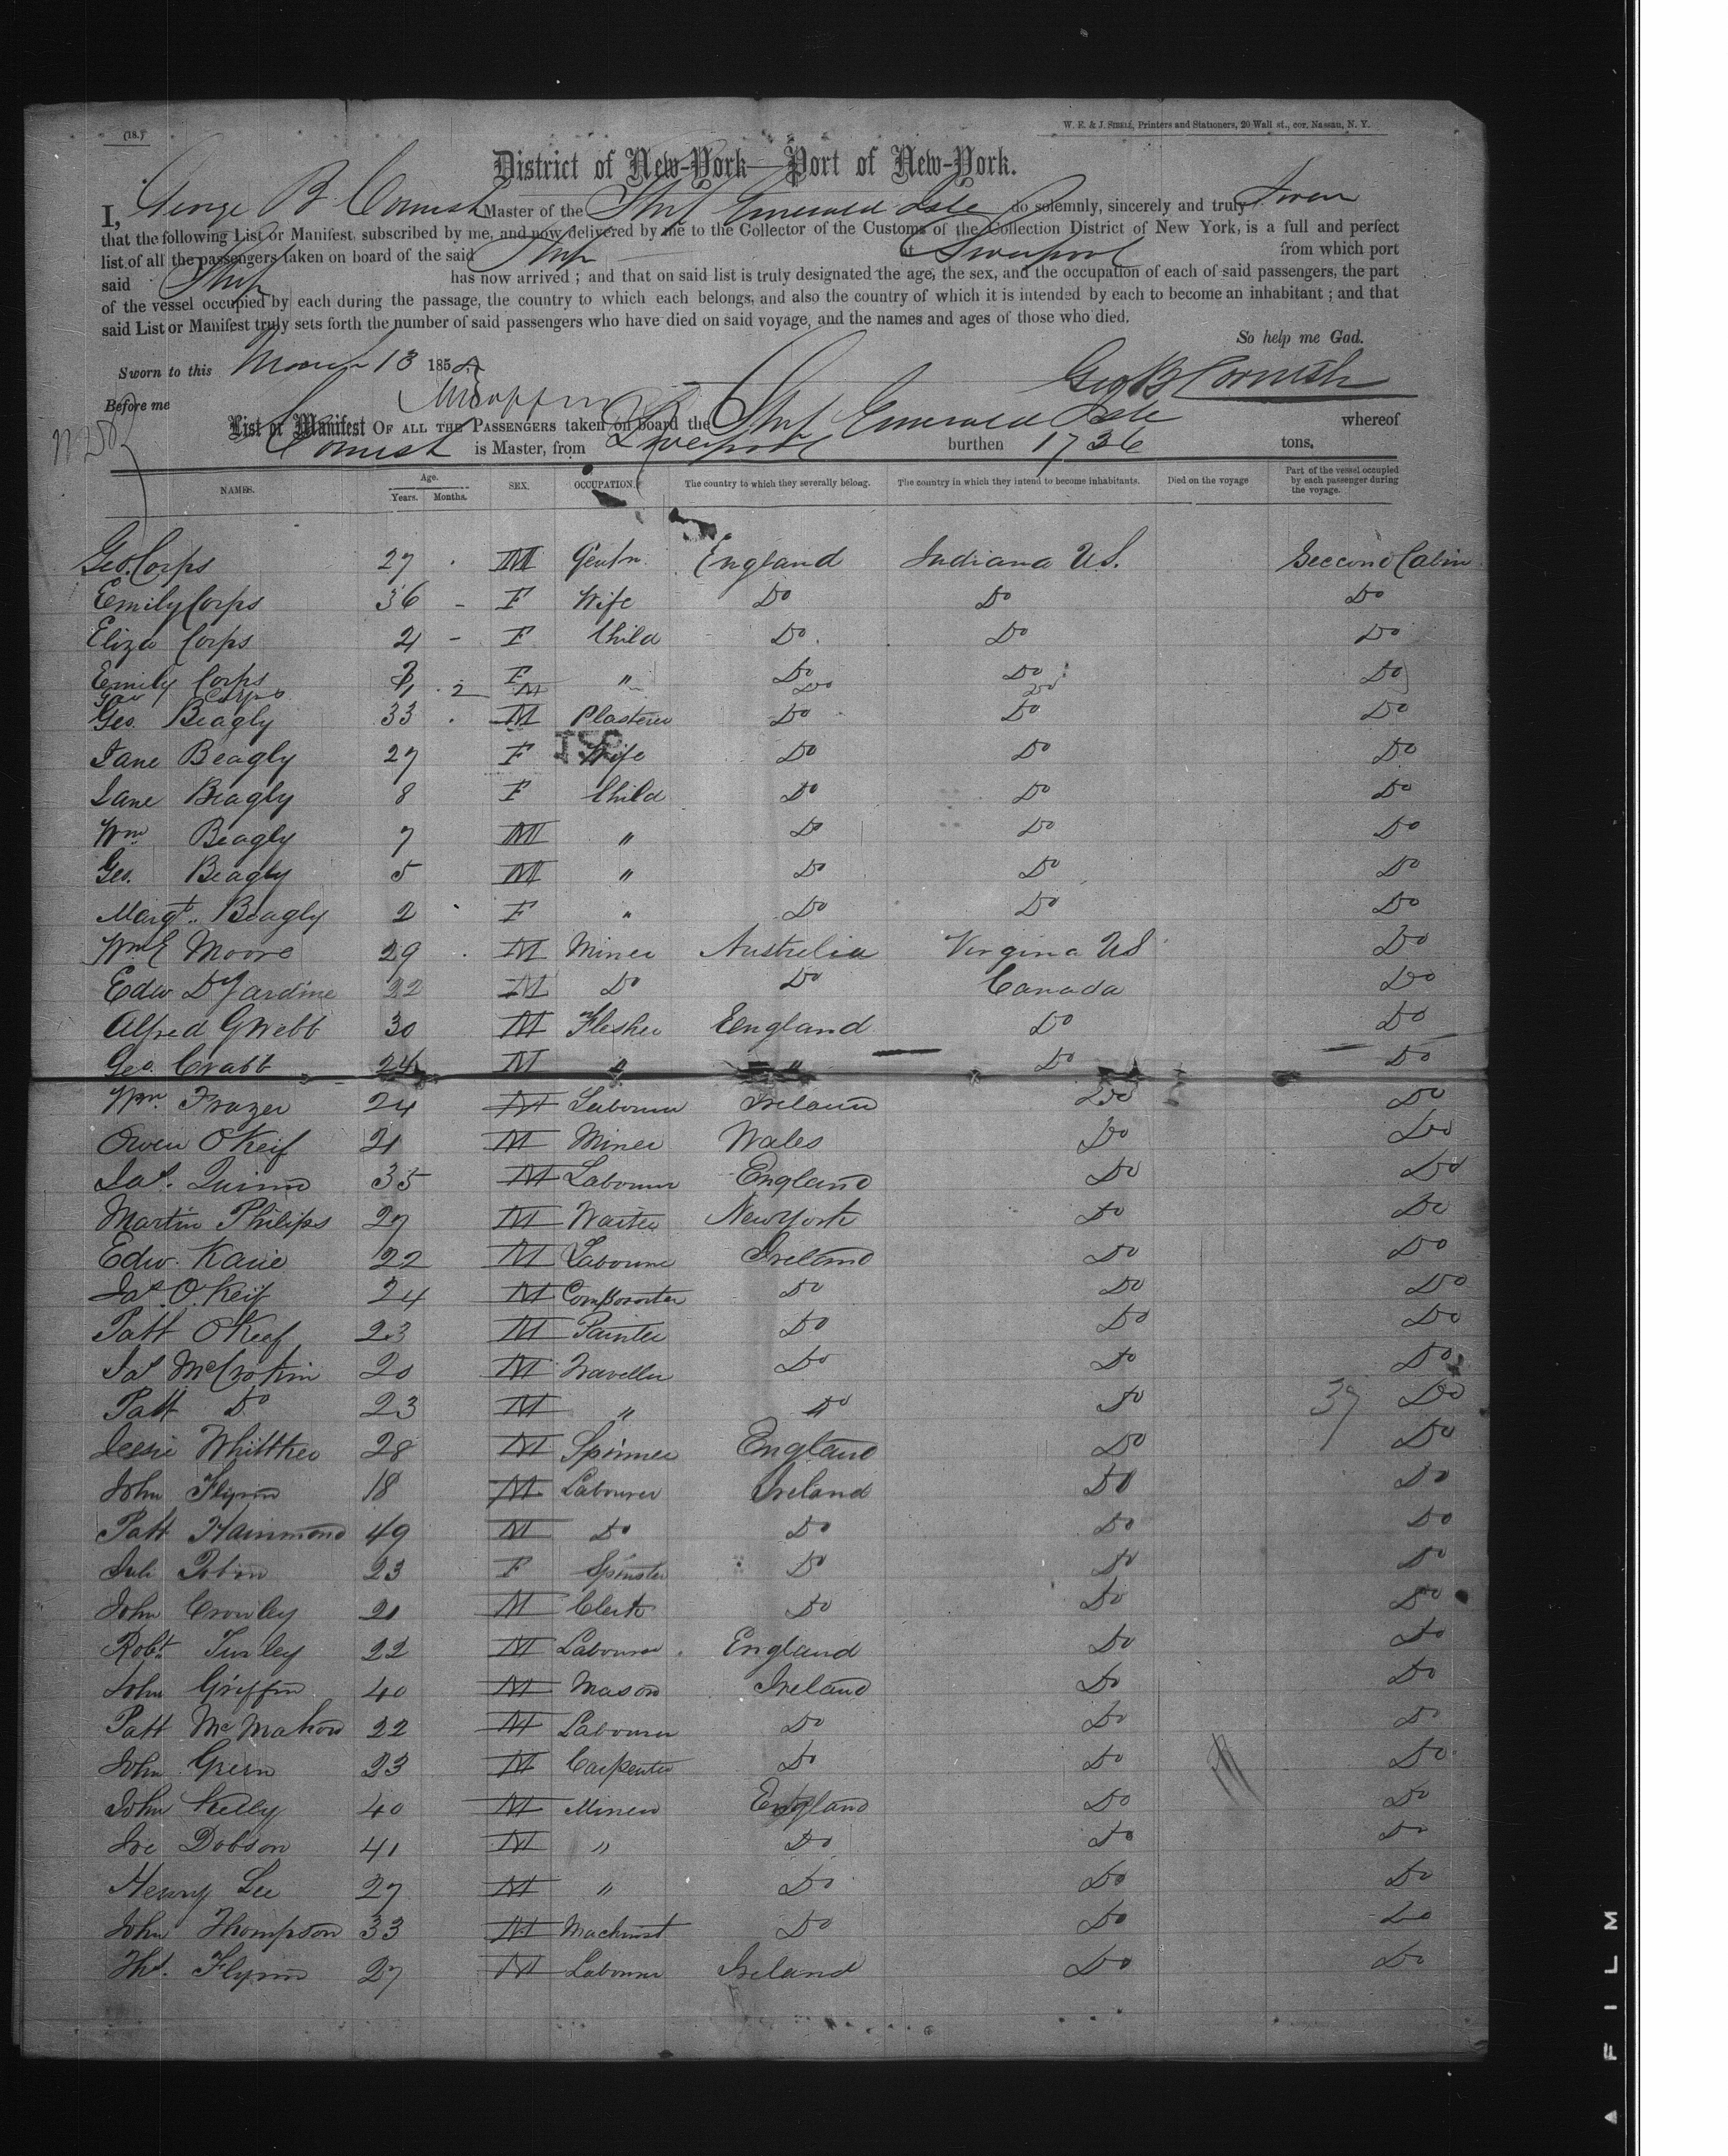 (18.)
W. E. & J. SIBELL, Printers and Stationers, 20 Wall st., cor. Nassau, N. Y.
District of New-York—Port of New-York.
I, George B Cornish Master of the Ship Emerald Isle do solemnly, sincerely and truly Swear
that the following List or Manifest, subscribed by me, and now delivered by me to the Collector of the Customs of the Collection District of New York, is a full and perfect
list of all the passengers taken on board of the said Ship at Liverpool from which port
said Ship has now arrived ; and that on said list is truly designated the age, the sex, and the occupation of each of said passengers, the part
of the vessel occupied by each during the passage, the country to which each belongs, and also the country of which it is intended by each to become an inhabitant ; and that
said List or Manifest truly sets forth the number of said passengers who have died on said voyage, and the names and ages of those who died.
So help me God.
Sworn to this March 13 185
Geo B Cornish
Before me
List or Manifest OF ALL THE PASSENGERS taken on board the Ship Emerald Isle whereof
Cornish is Master, from Liverpool burthen 1736 tons.
NAMES. Age. Years. Months. SEX. OCCUPATION. The country to which they severally belong. The country in which they intend to become inhabitants. Died on the voyage Part of the vessel occupied by each passenger during the voyage.
Geo. Corps 27 M Gentn. England Indiana US. Seccond Cabin
Emily Corps 36 - F Wife Do Do Do
Eliza Corps 4 - F Child Do Do Do
Emily Corps F " Do Do Do
Geo Corps 2 M Do Do
Geo. Beagly 33 M Plasterer Do Do Do
Jane Beagly 27 F Wife Do Do Do
Jane Beagly 8 F Child Do Do Do
Wm Beagly 7 M " Do Do Do
Geo. Beagly 5 M " Do Do Do
Margt. Beagly 2 F " Do Do Do
Wm E Moore 29 M Miner Australia Virgina US Do
Edw D Jardine 22 M Do Do Canada Do
Alfred G Webb 30 M Flesher England Do Do
Geo. Crabb 24 M " " Do Do
Wm. Frazer 24 M Labourer Ireland Do Do
Owen O'Keif 21 M Miner Wales Do Do
Jas. Quinn 35 M Labourer England Do Do
Martin Philips 27 M Waiter New York Do Do
Edw. Kane 22 M Labourer Ireland Do Do
Jas. O.Keif 24 M Compositor Do Do Do
Patt O'Keef 23 M Painter Do Do Do
Jas 20 M Traveller Do Do Do
Patt Do 23 M " Do Do 37 Do
Jessie Whittker 28 M Spinner England Do Do
John Flynn 18 M Labourer Ireland Do Do
Patt Hammond 49 M Do Do Do Do
Tobin 23 F Spinster Do Do Do
John Crowley 21 M Clerk Do Do Do
Robt. Turley 22 M Labourer England Do Do
John Griffin 40 M Mason Ireland Do Do
Patt McMahon 22 M Labourer Do Do Do
John Green 23 M Carpenter Do Do Do
John Kelly 40 M Miner England Do Do
Joe Dobson 41 M " Do Do Do
Henry Lee 27 M " Do Do Do
John Thompson 33 M Machinist Do Do Do
Ths. Flynn 27 M Labourer Ireland Do Do
FILM